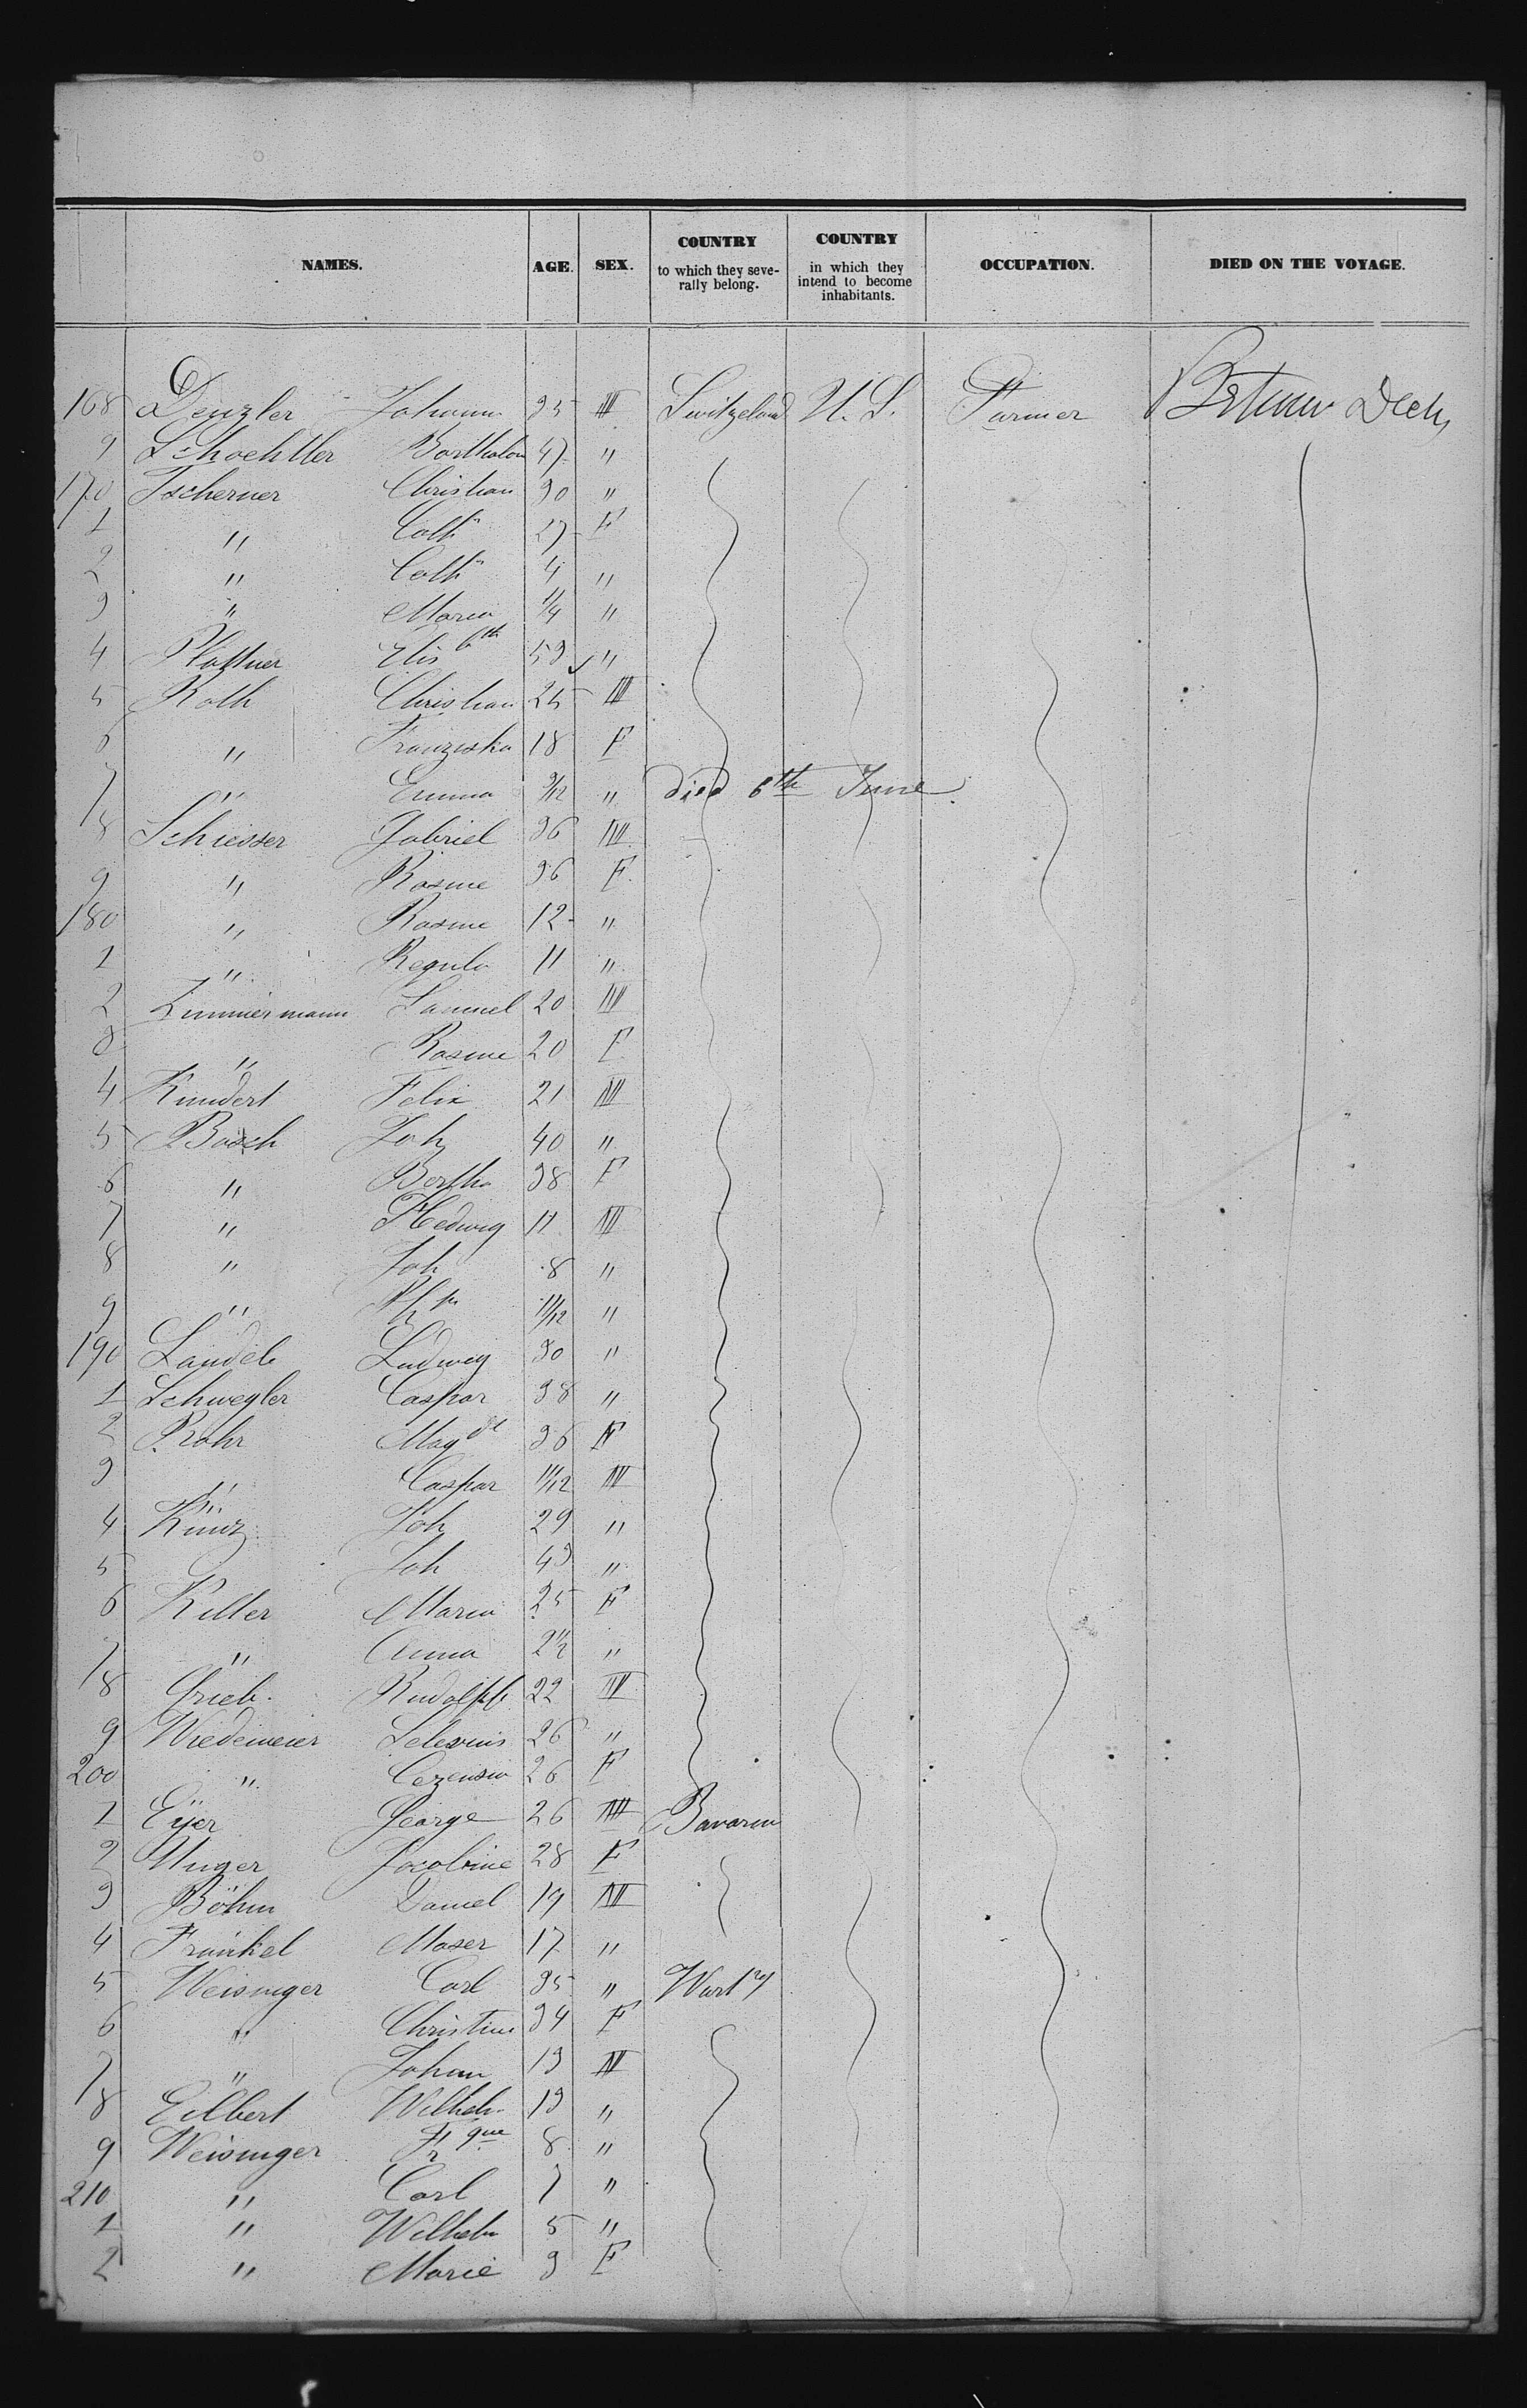 NAMES. AGE. SEX. COUNTRY to which they severally belong. COUNTRY in which they intend to become inhabitants. OCCUPATION. DIED ON THE VOYAGE.
168 Denzler Johann 35 M Switzeland U. S. Farmer Between Decks
9 Schoehtler Bartholom 47 "
170 Tscherner Christian 30 "
1 " Cath 27 F
2 " Cath 4 "
3 " Maria 1/4 "
4 Plattner Elisbth 53 "
5 Roth Christian 25 M
6 " Franziska 18 F
7 " Emma 3/12 " died 6th June
8 Schiesser Gabriel 36 M
9 " Rosine 36 F
180 " Rosine 12 "
1 " Regula 11 "
2 Zimmermann Samuel 20 M
3 " Rosine 20 F
4 Kundert Felix 21 M
5 Bosch Joh 40 "
6 " Bertha 38 F
7 " Hedwig 11 M
8 " Joh 8 "
9 " 11/12 "
190 Landele Ludwig 30 "
1 Schwegler Caspar 38 "
2 Rohr Magdl 36 F
3 " Caspar 11/12 M
4 Künz Joh 29 "
5 Joh 43 "
6 Keller Maria 25 F
7 " Anna 2 1/2 "
8 Grieb Rudolph 22 M
9 Wiedemeier 26 "
200 " 26 F
1 Eyer George 26 M Bavaria
2 Unger Jacobine 28 F
3 Böhm Daniel 19 M
4 Fränkel Moser 17 "
5 Weisinger Carl 35 " Wurtg
6 " Christine 34 F
7 " Johan 13 M
8 Eilbert Wilhelm 13 "
9 Weisinger 8 "
210 " Carl 7 "
1 " Wilhelm 5 "
2 " Marie 3 F